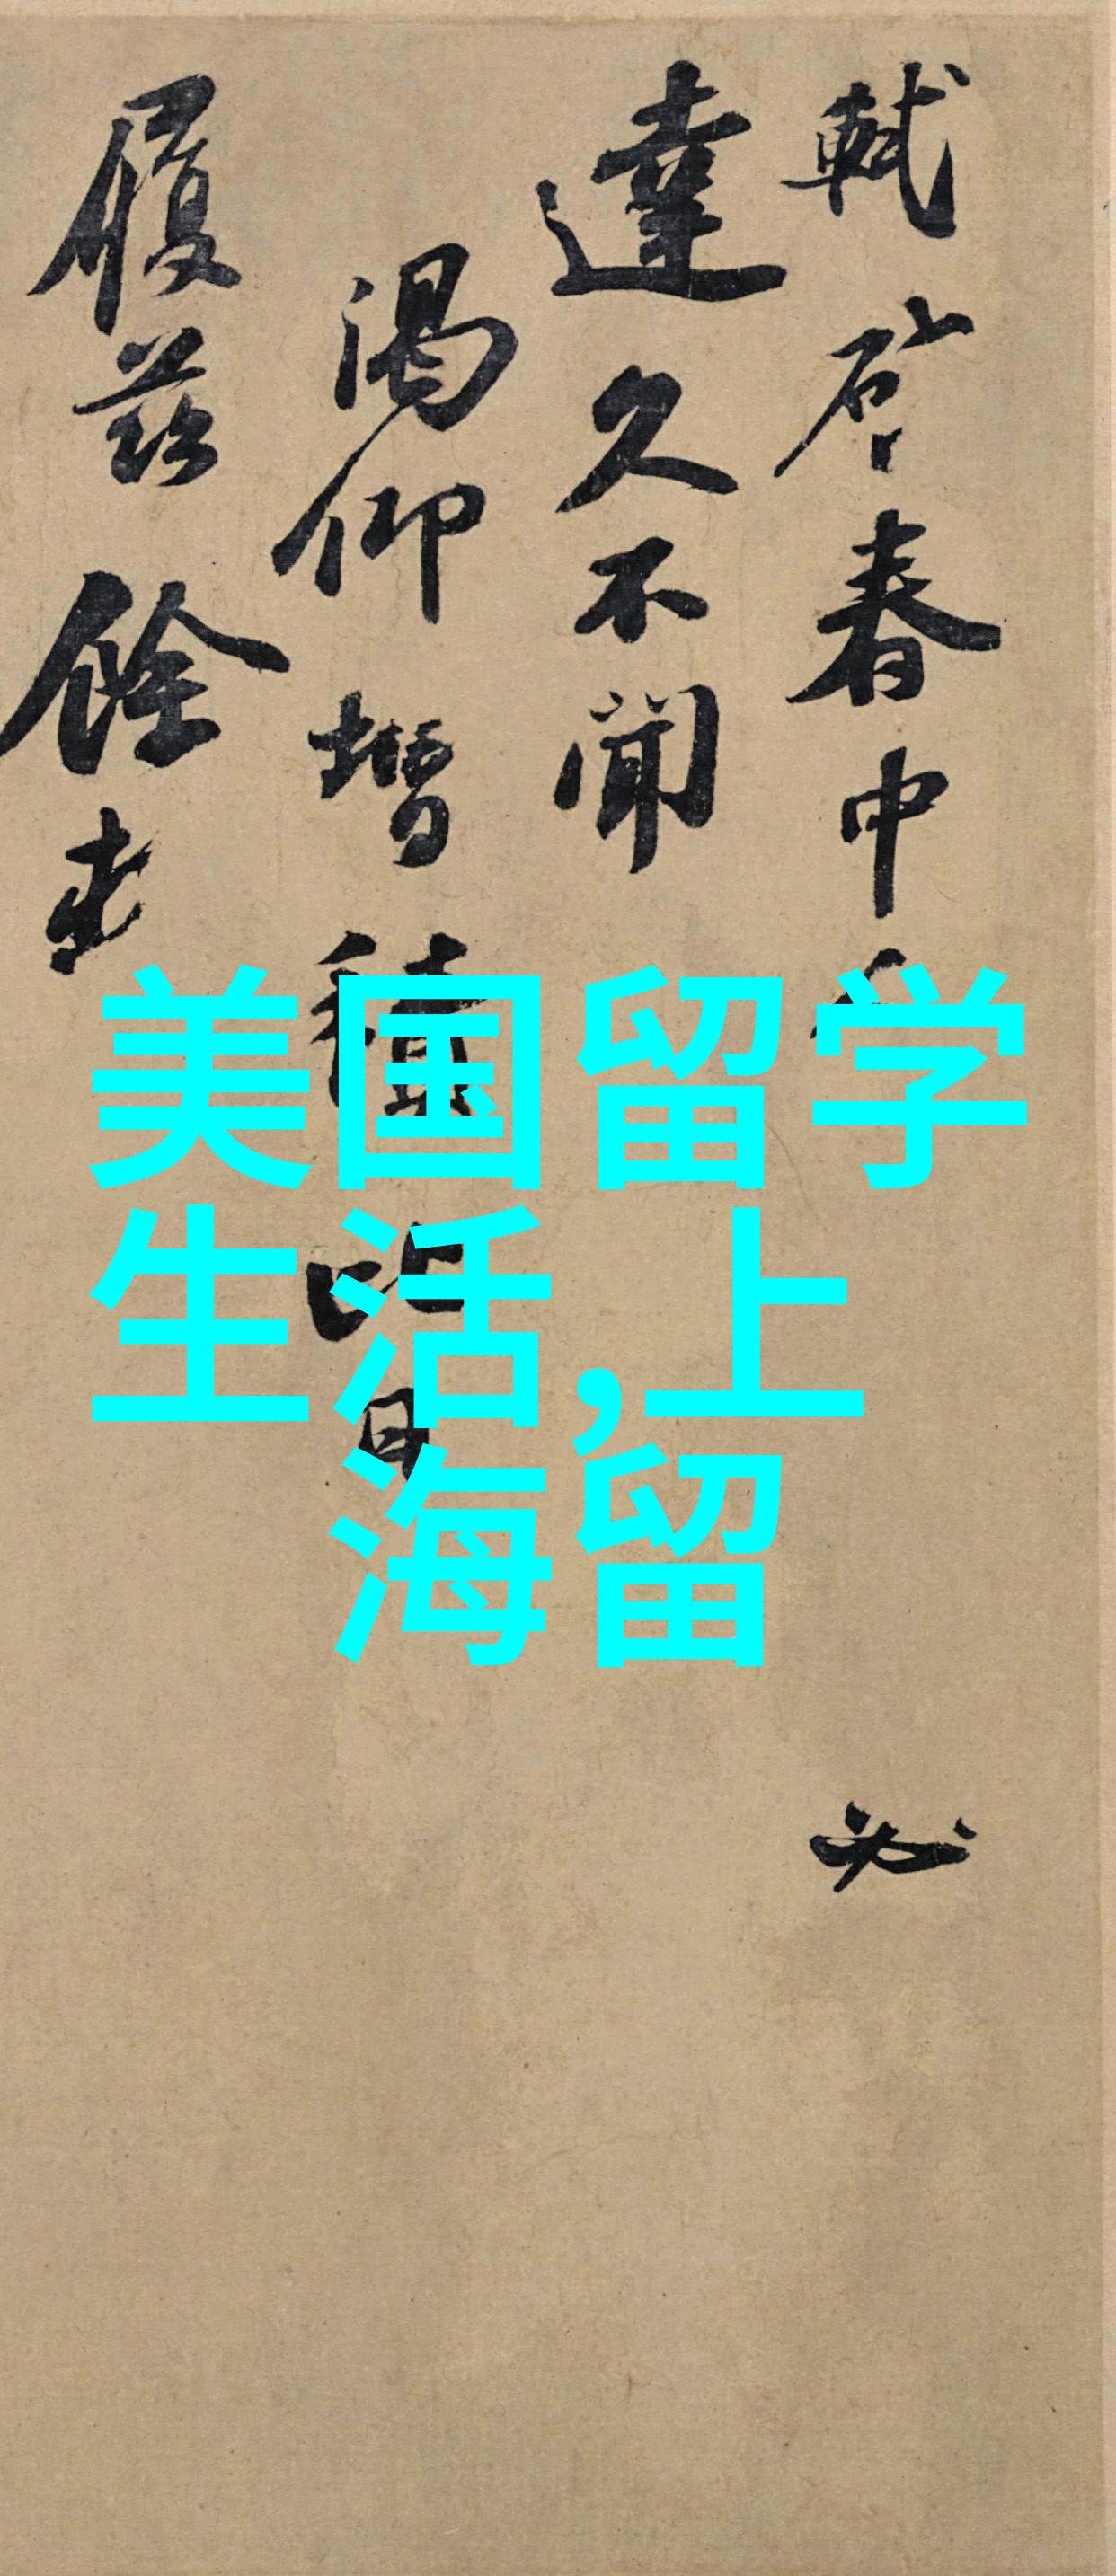 軾啓春中
必
達久不聞
渴仰增積比日
履茲餘
美国留学
生活,上
海留